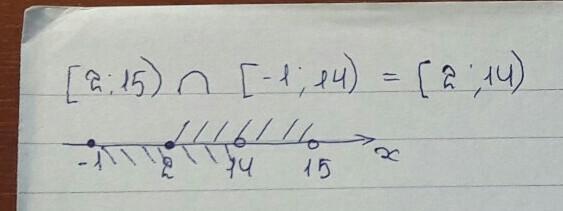 [2;15) ∩ [-1;14) = [2;14)
-1 2 14 15 x